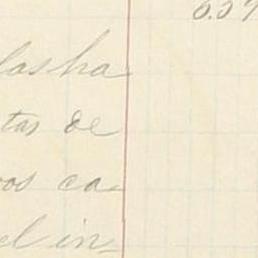 las ha
tas de
os ca-
el in-